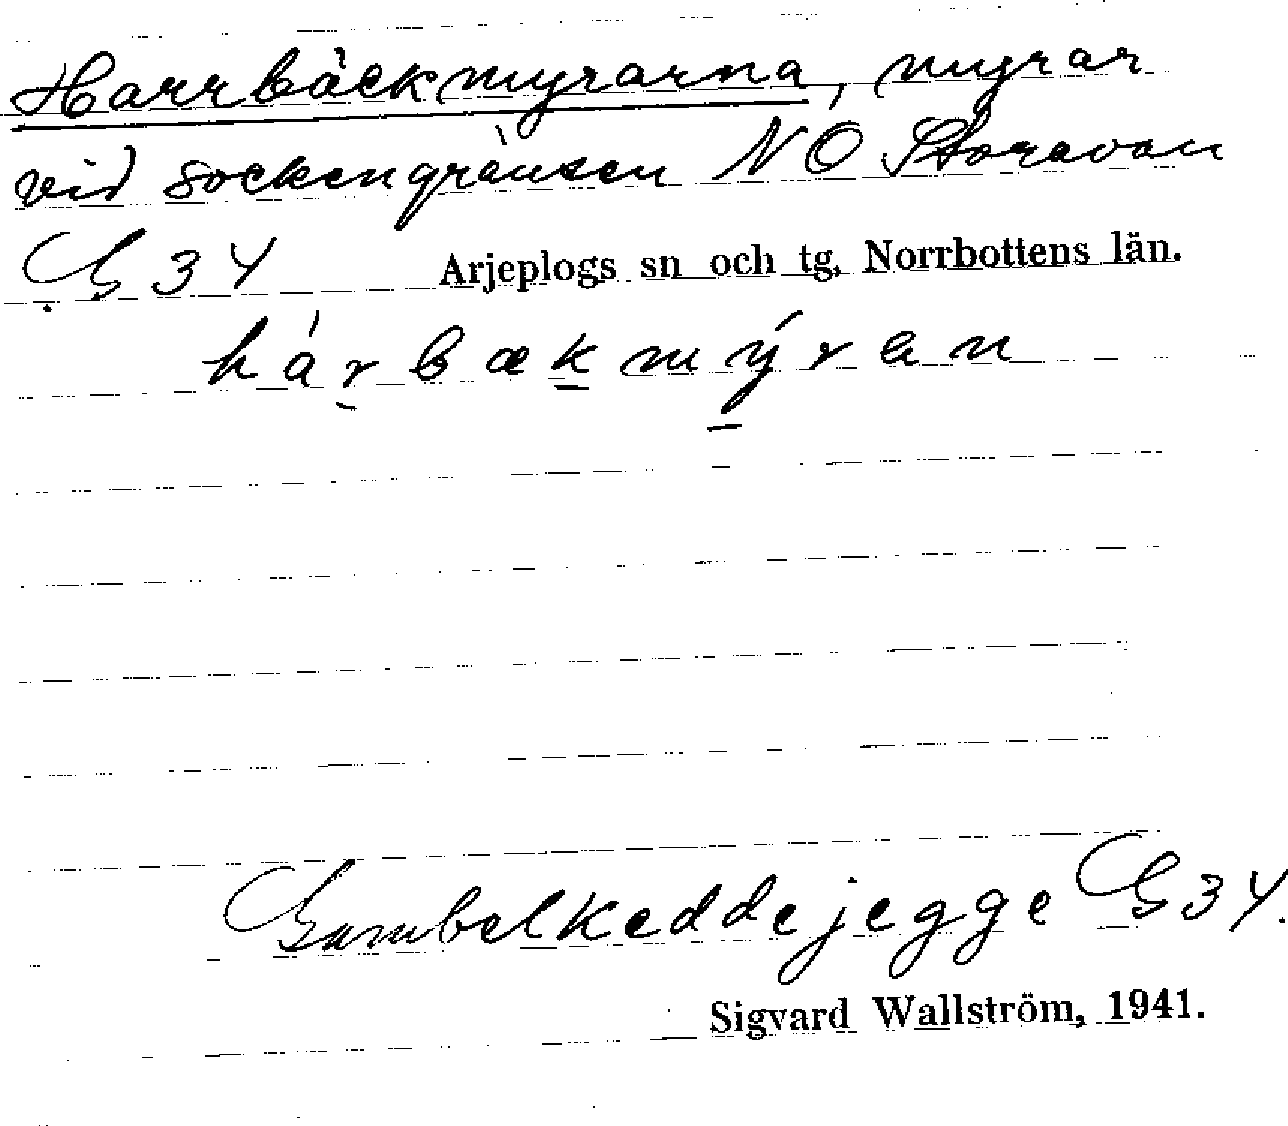 Harrbäckmyrarna, myrar
vid sockengränsen NO Storavan
G 34 Arjeplogs sn och tg. Norrbottens län.
hárbækmýran
Gambelkeddejegge G 34.
Sigvard Wallström, 1941.